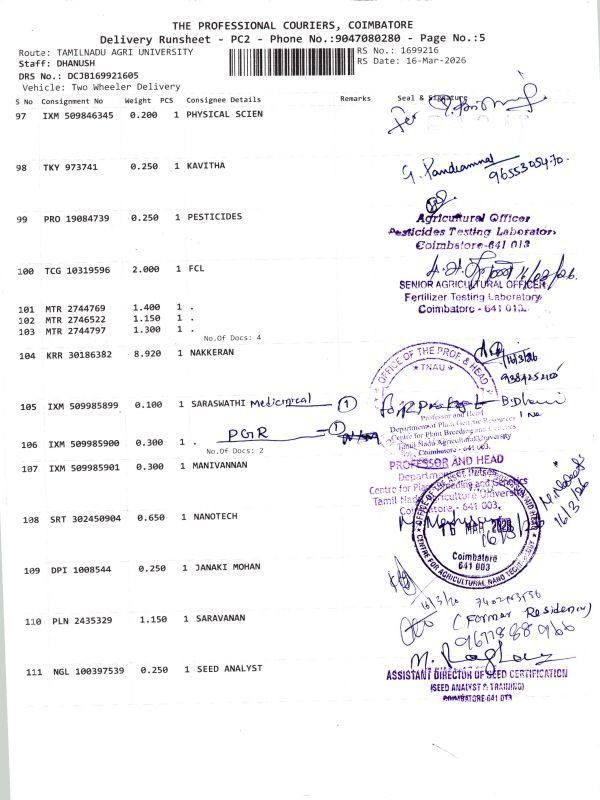 THE PROFESSIONAL COURIERS, COIMBATORE
Delivery Runsheet - PC2 - Phone No.:9047080280 - Page No.:5
Route: TAMILNADU AGRI UNIVERSITY
RS No.: 1699216
Staff: DHANUSH
RS Date: 16-Mar-2026
DRS No.: DCJB169921605
Vehicle: Two Wheeler Delivery
S No Consignment No Weight PCS Consignee Details Remarks Seal & Signature
97 IXM 509846345 0.200 1 PHYSICAL SCIEN
98 TKY 973741 0.250 1 KAVITHA
G. Pandiammal
9655305470.
99 PRO 19084739 0.250 1 PESTICIDES
Agricultural Officer
Pesticides Testing Laboratory
Coimbatore-641 013
100 TCG 10319596 2.000 1 FCL
16/03/26.
SENIOR AGRICULTURAL OFFICER
Fertilizer Testing Laboratory
Coimbatore - 641 013.
101 MTR 2744769 1.400 1 .
102 MTR 2746522 1.150 1 .
103 MTR 2744797 1.300 1 .
No.Of Docs: 4
104 KRR 30186382 8.920 1 NAKKERAN
16/3/26
OFFICE OF THE PROF. & HEAD
* TNAU *
105 IXM 509985899 0.100 1 SARASWATHI Medicinical 1
Professor and Head
Department of Plant Genetic Resources
Centre for Plant Breeding and Genetics
Tamil Nadu Agricultural University
Coimbatore - 641 003.
106 IXM 509985900 0.300 1 . PGR 1
No.Of Docs: 2
107 IXM 509985901 0.300 1 MANIVANNAN
PROFESSOR AND HEAD
Centre for Plant Breeding and Genetics
Tamil Nadu Agriculture University
Coimbatore - 641 003.
108 SRT 302450904 0.650 1 NANOTECH
16 MAR 2026
16/3/26
Coimbatore
641 003
CENTRE FOR AGRICULTURAL NANO TECHNOLOGY
109 DPI 1008544 0.250 1 JANAKI MOHAN
110 PLN 2435329 1.150 1 SARAVANAN
(Former Residency)
9677888966
111 NGL 100397539 0.250 1 SEED ANALYST
ASSISTANT DIRECTOR OF SEED CERTIFICATION
(SEED ANALYST & TRAINING)
COIMBATORE-641 013